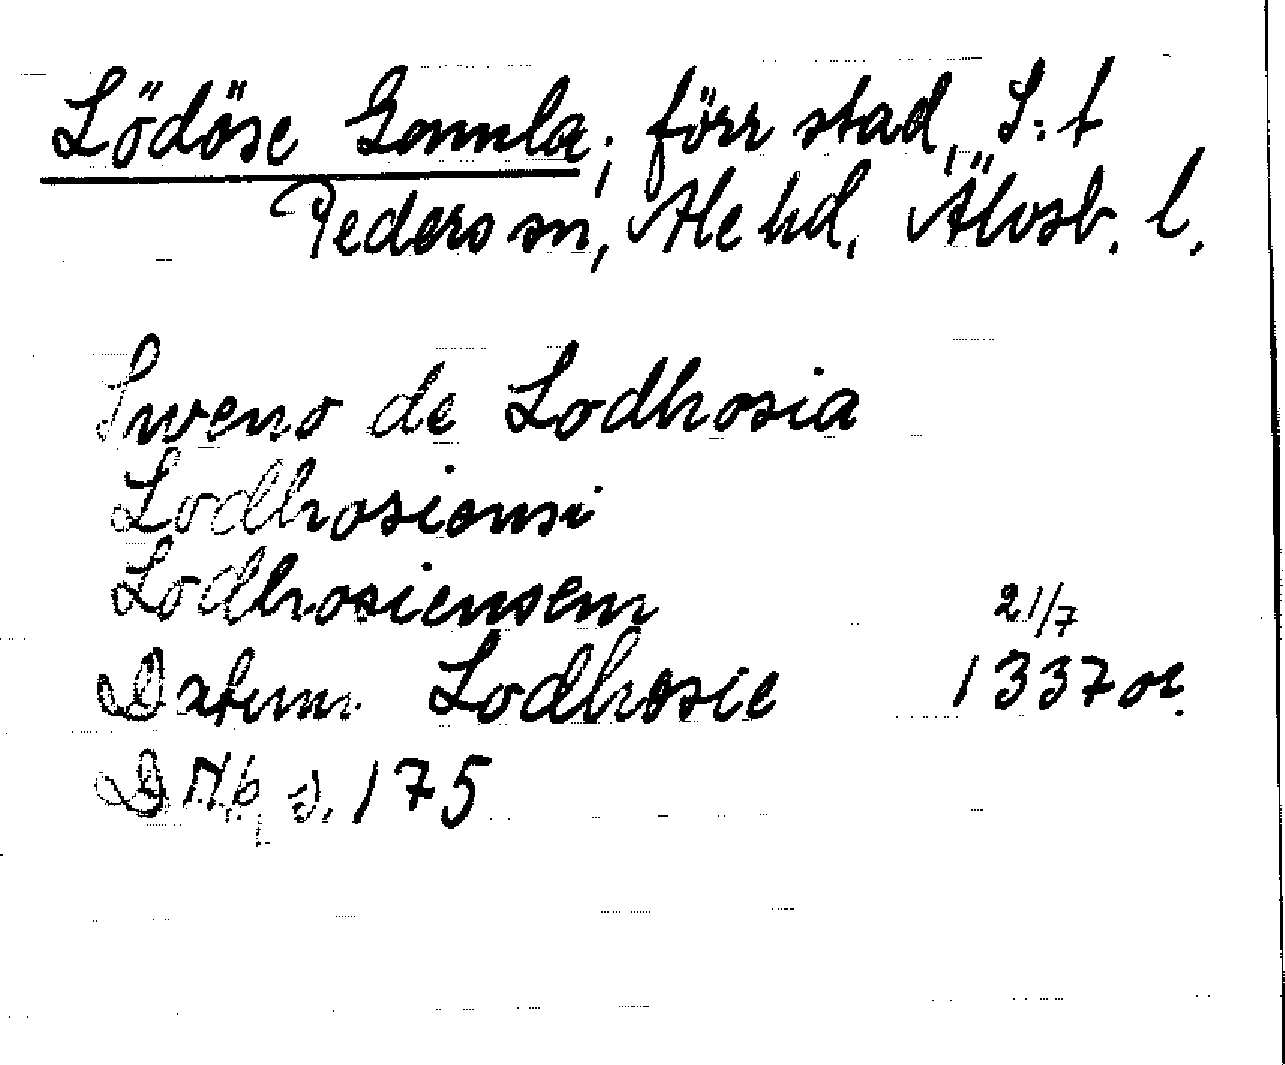 Lödöse Gamla; förr stad, S:t
Peders sn, Ale hd, Älvsb. l.
Sweno de Lodhosia
Lodhosiensi
Lodhosiensem
21/7
Datum Lodhosie 1337 or.
D Nb s. 175